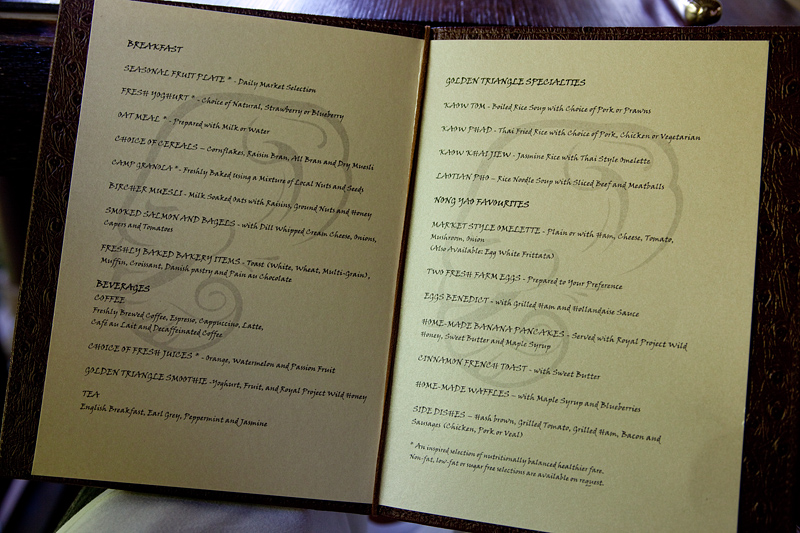 BREAKFAST
SEASONAL FRUIT PLATE * - Daily Market Selection
FRESH YOGHURT * - Choice of Natural, Strawberry or Blueberry
OAT MEAL * - Prepared with Milk or Water
CHOICE OF CEREALS – Cornflakes, Raisin Bran, All Bran and Dry Muesli
CAMP GRANOLA *- Freshly Baked using a Mixture of Local Nuts and Seeds
BIRCHER MUESLI - Milk Soaked Oats with Raisins, Ground Nuts and Honey
SMOKED SALMON AND BAGELS - with Dill Whipped Cream Cheese, Onions,
Capers and Tomatoes
FRESHLY BAKED BAKERY ITEMS - Toast (White, Wheat, Multi-Grain),
Muffin, Croissant, Danish pastry and Pain au Chocolate
BEVERAGES
COFFEE
Freshly Brewed Coffee, Espresso, Cappuccino, Latte,
Café au Last and Decaffeinated Coffee
CHOICE OF FRESH JUICES * - Orange, Watermelon and Passion Fruit
GOLDEN TRIANGLE SMOOTHIE -Yoghurt, Fruit, and Royal Project Wild Honey
TEA
English Breakfast, Earl Grey, Peppermint and Jasmine
GOLDEN TRIANGLE SPECIALTIES
KAOW TOM - Boiled Rice Soup with Choice of Pork or Prawns
KAOW PHAD - Thai Fried Rice with Choice of Pork, Chicken or Vegetarian
KAOW KHAI JIEW - Jasmine Rice with Thai Style Omelette
LAOTIAN PHO – Rice Noodle Soup with Sliced Beef and Meatballs
NONG YAO FAVOURITES
MARKET STYLE OMELETTE - Plain or with Ham, Cheese, Tomato,
Mushroom, Onion
(Also Available: Egg White Frittata)
TWO FRESH FARM EGGS - Prepared to Your Preference
EGGS BENEDICT - with Grilled Ham and Hollandaise Sauce
HOME-MADE BANANA PANCAKES - Served with Royal Project Wild
Honey, Sweet Butter and Maple Syrup
CINNAMON FRENCH TOAST - with Sweet Butter
HOME-MADE WAFFLES – with Maple Syrup and Blueberries
SIDE DISHES – Hash brown, Grilled Tomato, Grilled Ham, Bacon and
Sausages (Chicken, Pork or Veal)
* An inspired selection of nutritionally balanced healthier fare.
Non-fat, low-fat or sugar free selections are available on request.